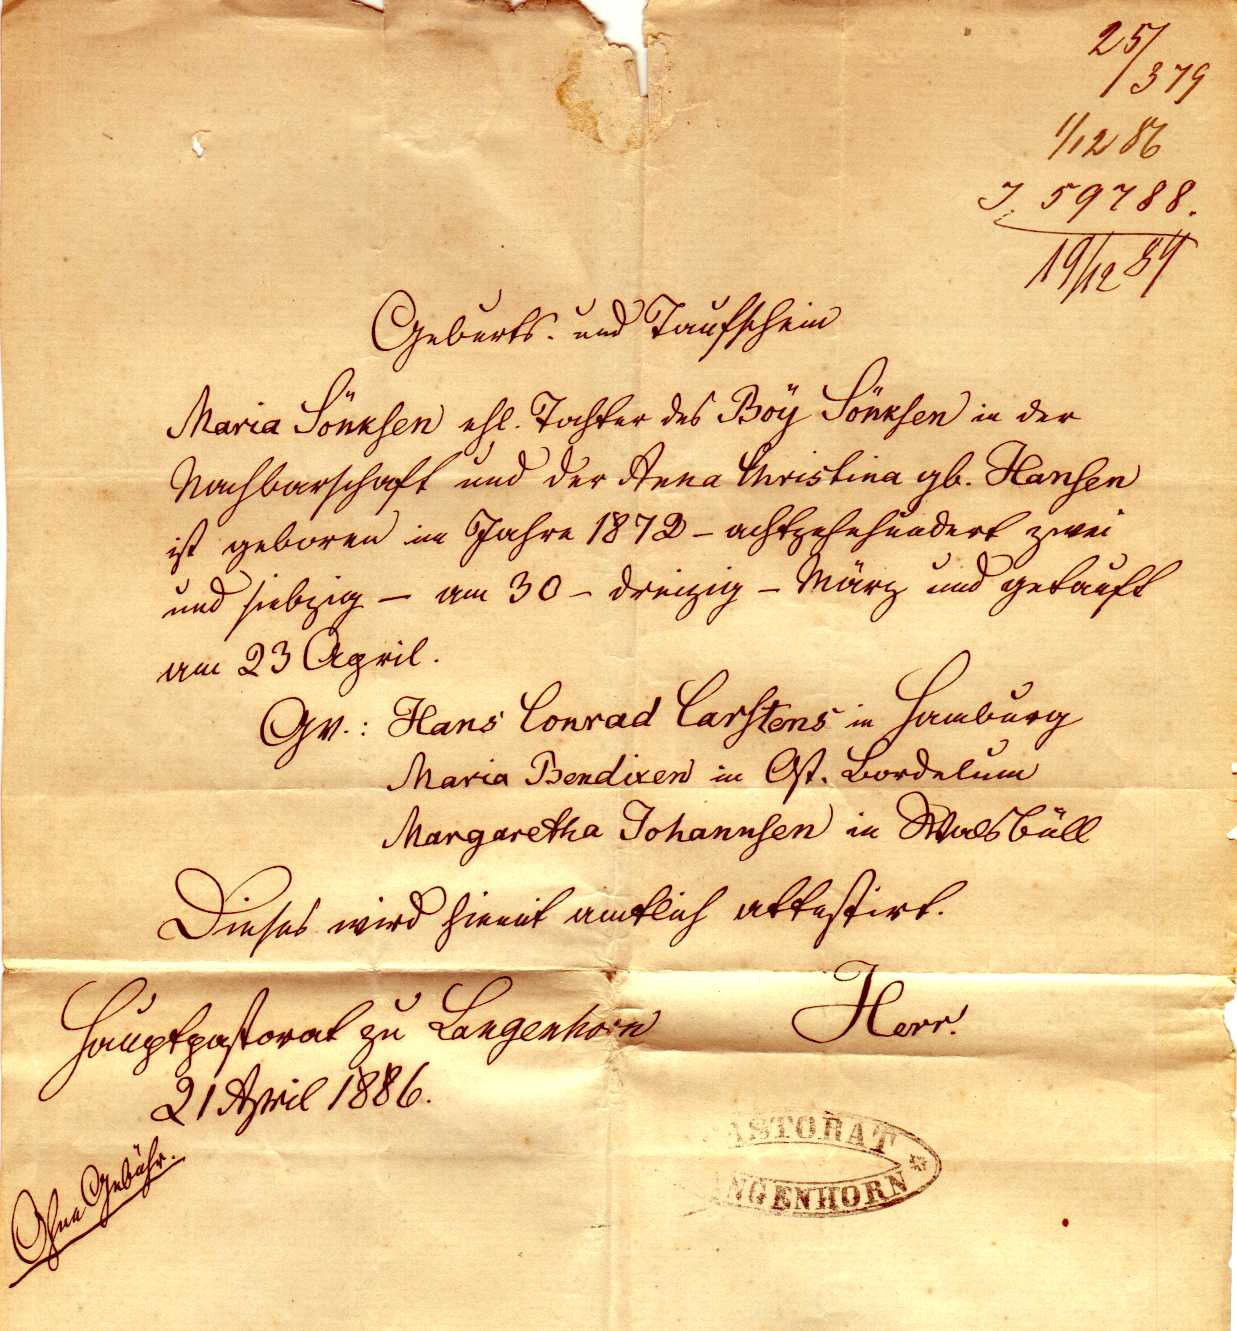 25/
379
1/12 86
J. 59788.
19/12 89
Geburts- und Taufschein
Maria Sönksen ehl. Tochter des Böy Sönksen in der
Nachbarschaft und der Anna Christina gb. Hansen
ist geboren im Jahre 1872 – achtzehnhundert zwei
und siebzig – am 30 – dreizig – März und getauft
am 23 April.
Gv.: Hans Conrad Carstens in Hamburg
Maria Bendixen in Ost. Bordelum
Margaretha Johannsen in
Dieses wird hiemit amtlich attestirt.
Hauptpastorat zu Langenhorn Herr.
21 April 1886.
Ohne Gebühr.
ASTORAT
ANGENHORN